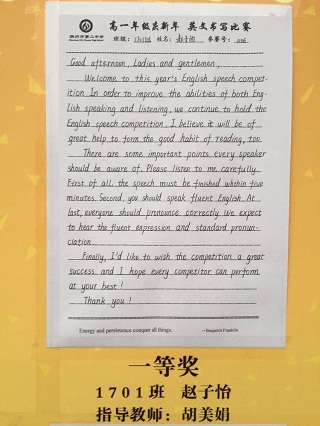 高一年级迎新年 英文书写比赛
班级: 1701班 姓名: 赵子怡 参赛号: 026
Good afternoon, Ladies and gentlemen,
Welcome to this year's English speech compet-
ition. In order to improve the abilities of both Eng-
lish speaking and listening, we continue to hold the
English speech competition. I believe it will be of
great help to form the good habit of reading, too.
There are some important points every speaker
should be aware of. Please listen to me carefully.
First of all, the speech must be finished whthin five
minutes. Second, you should speak fluent English. At
last, everyone should pronounce correctly. We expect
to hear the fluent expression and standard pronun-
ciation.
Finally, I'd like to wish the competition a great
success and I hope every competitor can perform
at your best!
Thank you!
Energy and persistence conquer all things.
-- Benjamin Franklin
一等奖
1701班 赵子怡
指导教师: 胡美娟